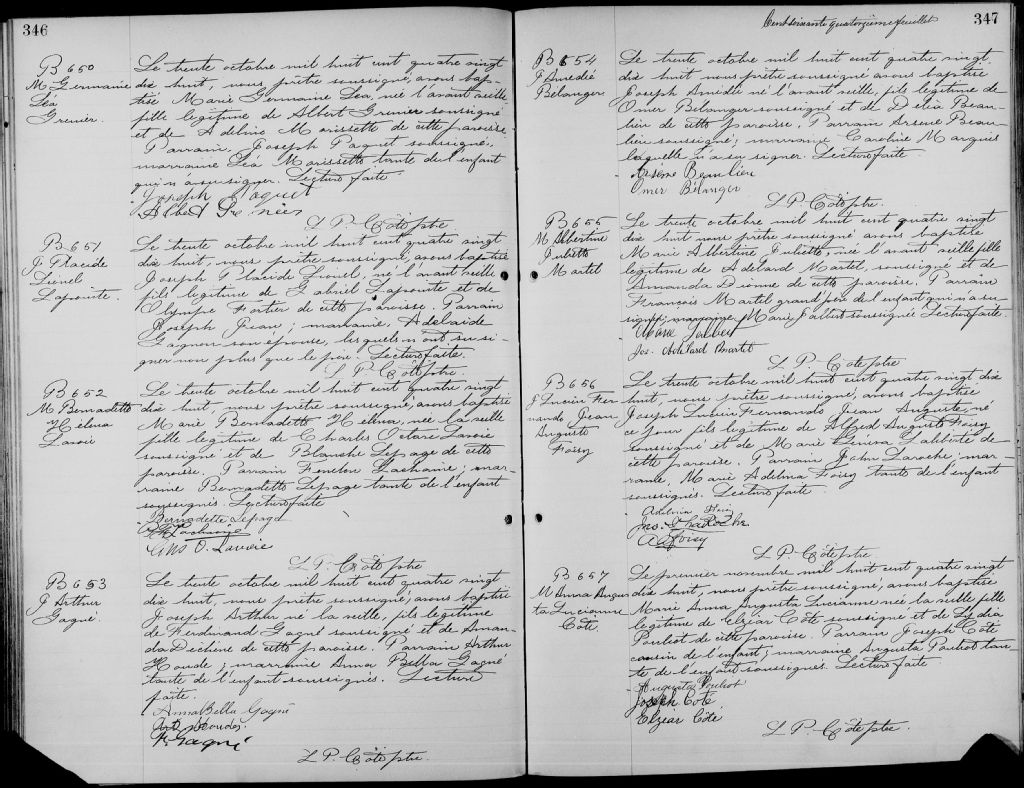 346
B 650
M Germaine
Léa
Grenier.
Le trente octobre mil huit cent quatre vingt
dix huit, nous prêtre soussigné, avons bap-
tisé Marie Germaine Léa, née l'avant veille,
fille légitime de Albert Grenier soussigné
et de Adelina Morissette de cette paroisse.
Parrain, Joseph Paquet soussigné,
marraine Léa Morissette tante de l'enfant
qui n'a su signer. Lecture faite.
Joseph Paquet
Albert Grenier
L. P. Côté ptre
B 651
J. Placide
Lionel
Lapointe.
Le trente octobre mil huit cent quatre vingt
dix huit, nous prêtre soussigné, avons baptisé
Joseph Placide Lionel, né l'avant veille
fils légitime de Gabriel Lapointe et de
Olympe Fortier de cette paroisse. Parrain
Joseph Jean; marraine, Adelaide
Gagnon son épouse, lesquels n'ont su si-
gner non plus que le père. Lecture faite.
L. P. Côté ptre.
B 652
M. Bernadette
Hélena
Lavoie
Le trente octobre mil huit cent quatre vingt
dix huit, nous prêtre soussigné, avons baptisé
Marie Bernadette Hélena, née la veille
fille légitime de Charles Octave Lavoie
soussigné et de Blanche Lepage de cette
paroisse. Parrain Lachaine; mar-
raine Bernadette Lepage tante de l'enfant
soussignés. Lecture faite
Bernadette Lepage
Lachaine
Chs O. Lavoie
L. P. Côté ptre
B 653
J Arthur
Gagné.
Le trente octobre mil huit cent quatre vingt
dix huit, nous prêtre soussigné, avons baptisé
Joseph Arthur né la veille, fils légitime
de Ferdinand Gagné soussigné et de Aman-
da Dechène de cette paroisse. Parrain Arthur
Houde; marraine Anna Bella Gagné
tante de l'enfant soussignés. Lecture
faite.
AnnaBella Gagné
Art.
F. Gagné
L. P. Côté ptre.
Cent soixante quatorzième feuillet
347
B 654
J Amédé
Bélanger
Le trente octobre mil huit cent quatre vingt
dix huit nous prêtre soussigné avons baptisé
Joseph Amédé né l'avant veille, fils légitime de
Omer Bélanger soussigné et de Delia Beau-
lieu de cette paroisse. Parrain Arsène Beau-
lieu soussigné; marraine Caroline Marquis
laquelle n'a su signer. Lecture faite
Arsène Beaulieu
Omer Bélanger
L. P. Côté ptre.
B 655
M Albertine
Juliette
Martel
Le trente octobre mil huit cent quatre vingt
dix huit nous prêtre soussigné avons baptisé
Marie Albertine Juliette, née l'avant veille fille
légitime de Adelard Martel, soussigné et de
Amanda Dionne de cette paroisse. Parrain
François Martel grand père de l'enfant qui n'a su
signer; marraine Marie Jalbert soussignée Lecture faite.
Marie Jalbert
Jos. Adelard Martel
L. P. Côté ptre
B 656
J Lucien Fer
nando Jean
Auguste
Foisy
Le trente octobre mil huit cent quatre vingt dix
huit, nous prêtre soussigné, avons baptisé
Joseph Lucien Fernando Jean Auguste, né
ce jour fils légitime de Alfred Auguste Foisy
soussigné et de Marie Géniva Laliberté de
cette paroisse. Parrain John Laroche; mar-
raine, Marie Adelina Foisy tante de l'enfant
soussignés. Lecture faite
Adelina Foisy
Jno. LaRoche
A. Foisy
L. P. Côté ptre
B 657
M Anna Augus
ta Lucianne
Côté.
Le premier novembre mil huit cent quatre vingt
dix huit, nous prêtre soussigné, avons baptisé
Marie Anna Augusta Lucianne née la veille fille
légitime de Elzéar Côté soussigné et de Lydia
Pouliot de cette paroisse. Parrain Joseph Côté
cousin de l'enfant; marraine Augusta Pouliot tan-
te de l'enfant soussignés. Lecture faite
Augusta Pouliot
Joseph Coté
Elzéar Côté
L. P. Côté ptre.